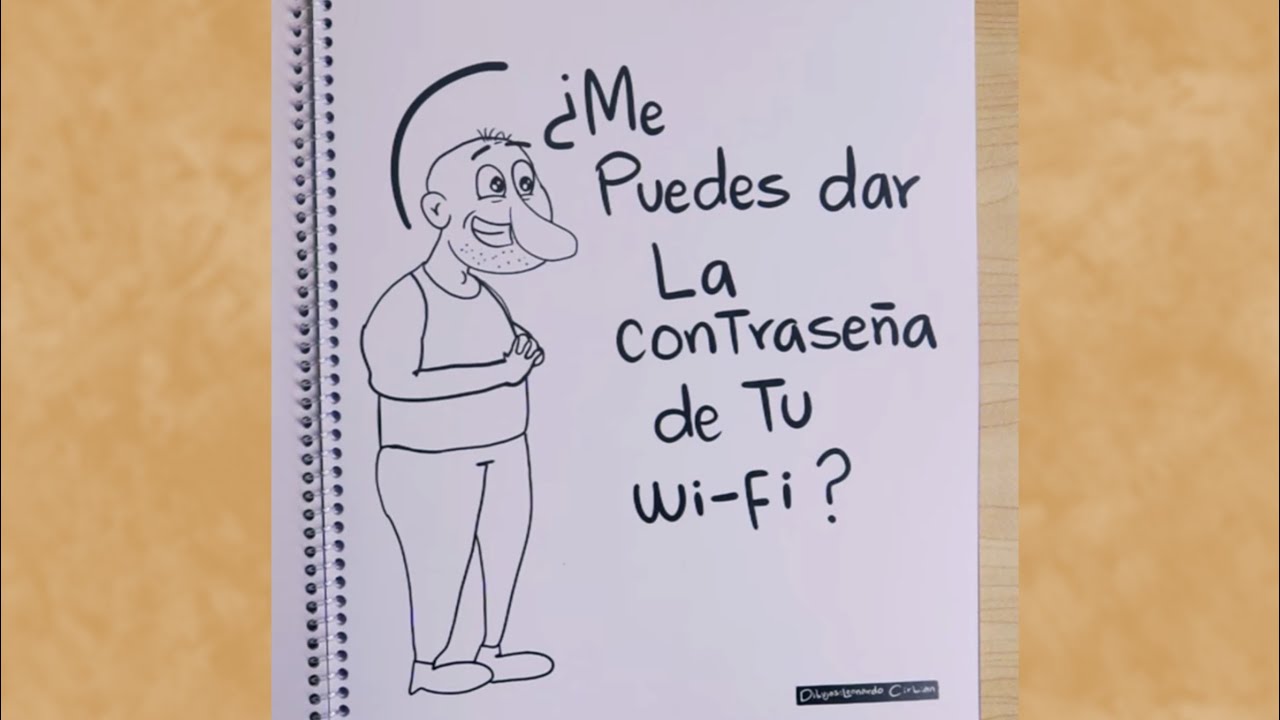 ¿Me
Puedes dar
La
conTraseña
de Tu
Wi-Fi?
Dibujos:Leonardo Cirbian